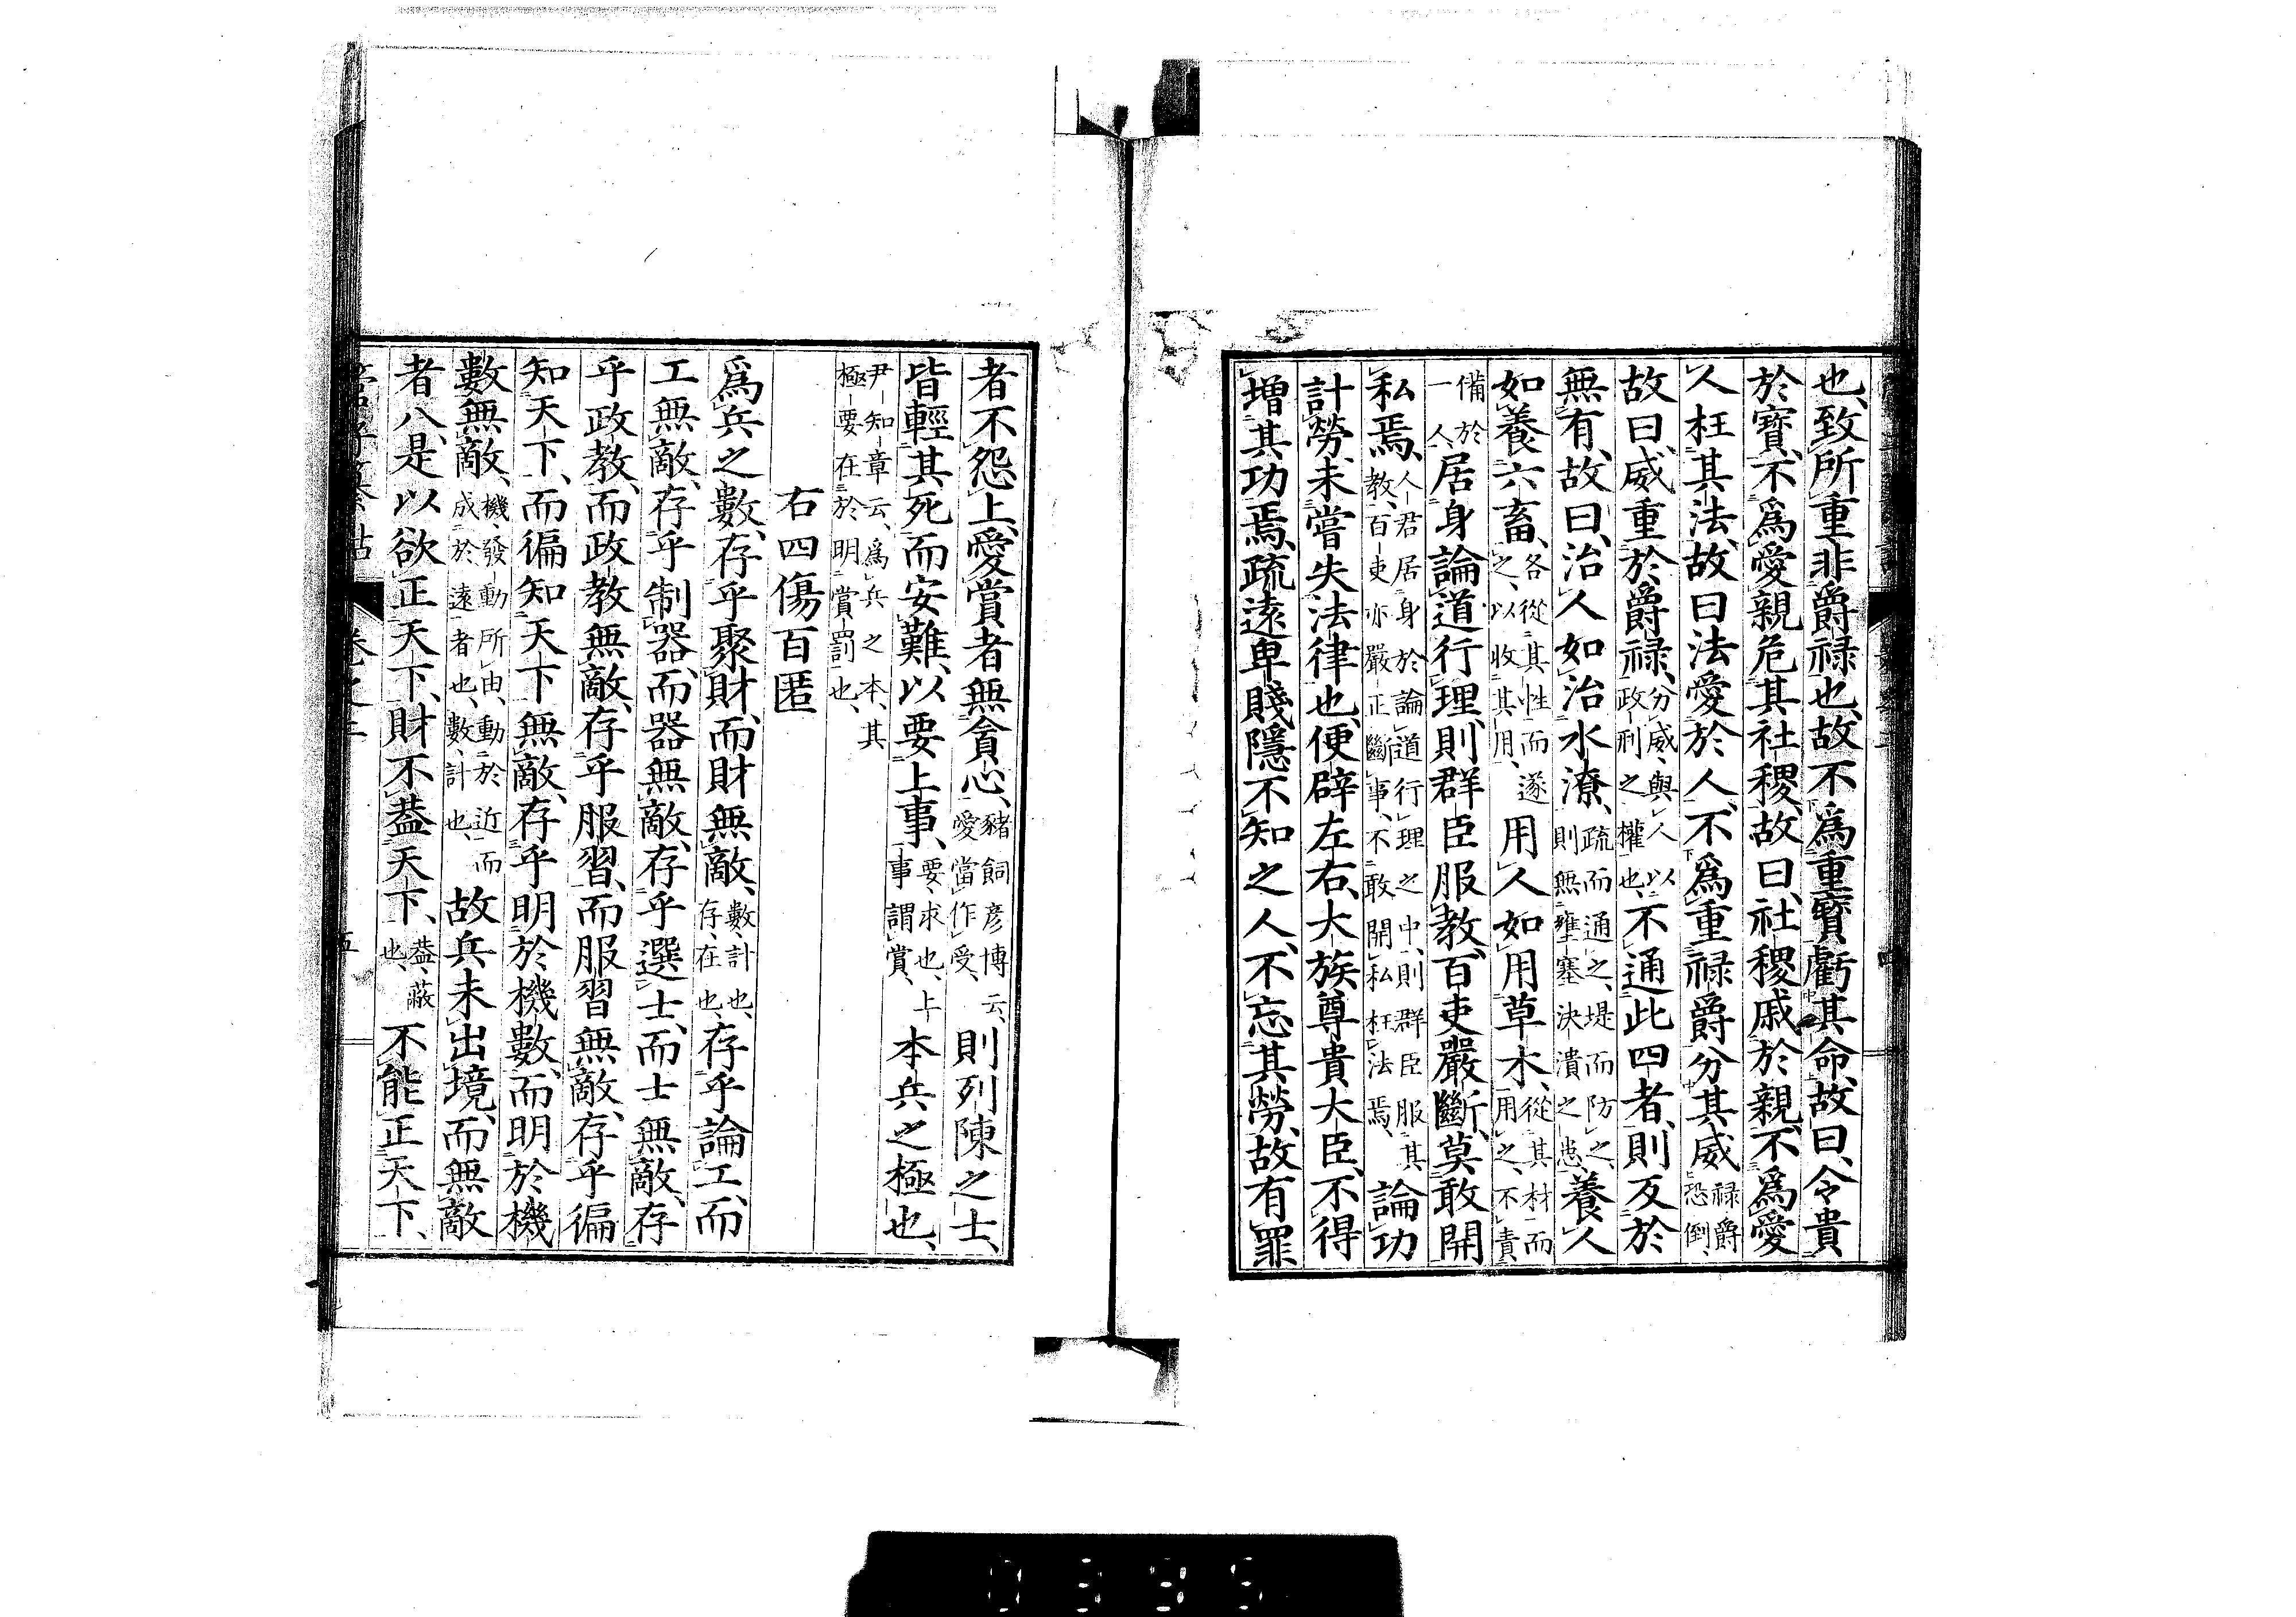 也、致所重非爵禄也、故不爲重寶虧其命、故曰、令貴
於寶、不爲愛親危其社稷、故曰、社稷戚於親、不爲愛
人枉其法、故曰法愛於人、不爲重禄爵分其威禄爵恐倒、
故曰、威重於爵禄、分威、與人以政刑之權也、不通此四者、則反於
無有、故曰、治人如治水潦、疏而通之、堤而防之、則無壅塞決潰之患、養人
如養六畜、各從其性而遂之、以收其用、用人如用草木、從其材而用之、不責
備於一人、居身論道行理、則群臣服教、百吏嚴斷、莫敢開
私焉、人君居身於論道行理之中、則群臣服其教、百吏亦嚴正斷事、不敢開私枉法焉、論功
計勞、未嘗失法律也、便辟左右、大族尊貴大臣、不得
增其功焉、疏遠卑賤隱不知之人、不忘其勞、故有罪
者不怨上、愛賞者無貪心、豬飼彦博云、愛當作受、則列陳之士、
皆輕其死而安難、以要上事、要、求也、上事謂賞、本兵之極也、
尹知章云、爲兵之本、其極要在於明賞罰也、
右四傷百匿
爲兵之數、存乎聚財、而財無敵、數、計也、存、在也、存乎論工、而
工無敵、存乎制器、而器無敵、存乎選士、而士無敵、存
乎政教、而政教無敵、存乎服習、而服習無敵、存乎徧
知天下、而徧知天下無敵、存乎明於機數、而明於機
數無敵、機、發動所由、動於近而成於遠者也、數、計也、故兵未出境、而無敵
者八、是以欲正天下、財不蓋天下、蓋、蔽也、不能正天下、